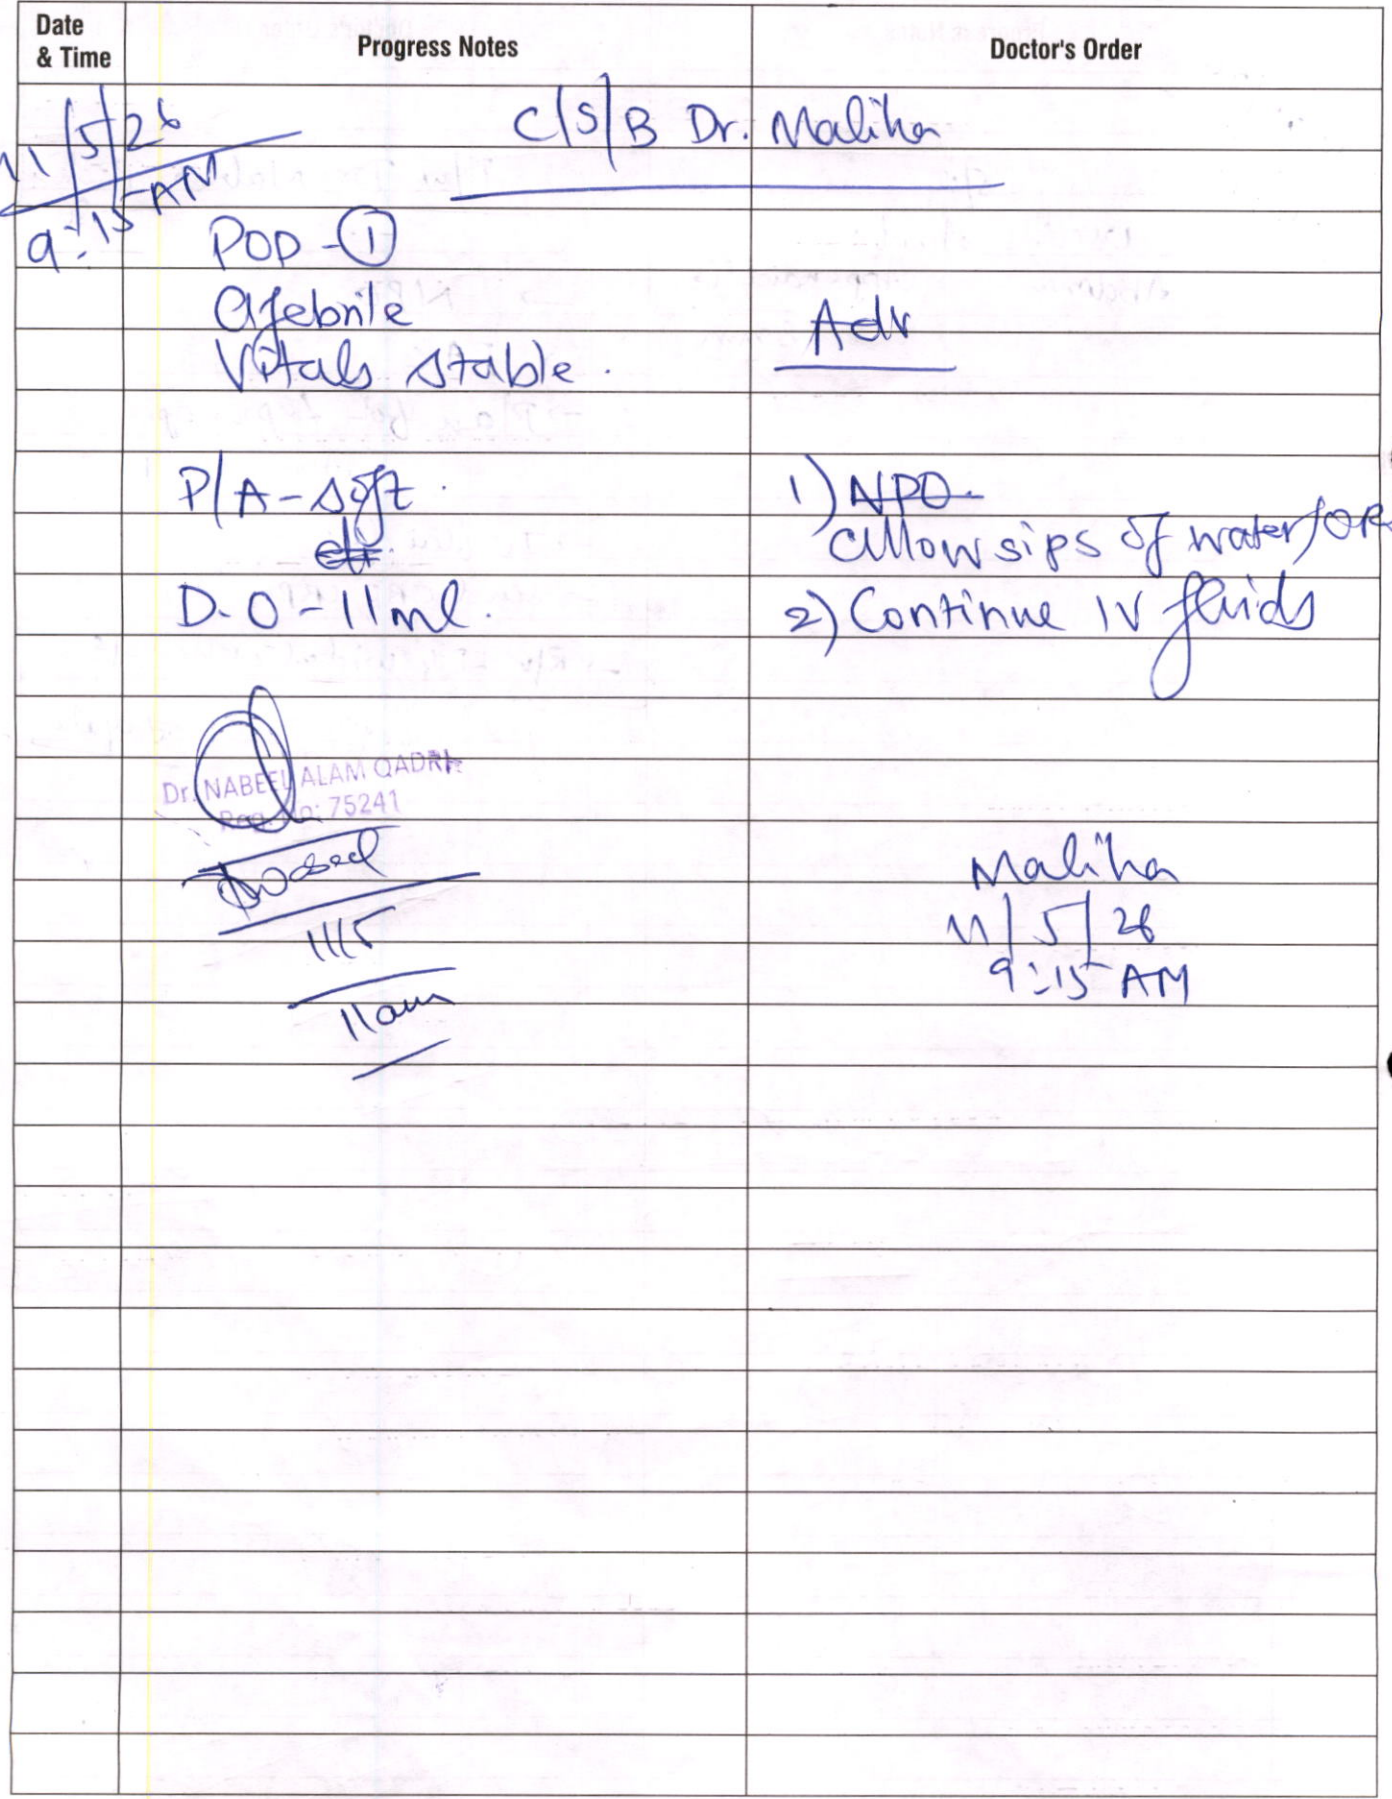 Date & Time
Progress Notes
Doctor's Order
11/5/26
9:15 AM
C/S/B Dr. Maliha
POD - 1
Afebrile
Vitals stable.
Adv
P/A - soft.
D.O - 11 ml.
1) NPO
allow sips of water/OR
2) Continue IV fluids
Dr. NABEEL ALAM QADRI
Reg. No: 75241
11/5
11am
Maliha
11/5/26
9:15 AM